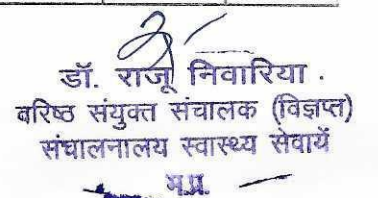 डॉ. राजू निवारिया .
वरिष्ठ संयुक्त संचालक (विज्ञप्त)
संचालनालय स्वास्थ्य सेवायें
म.प्र.